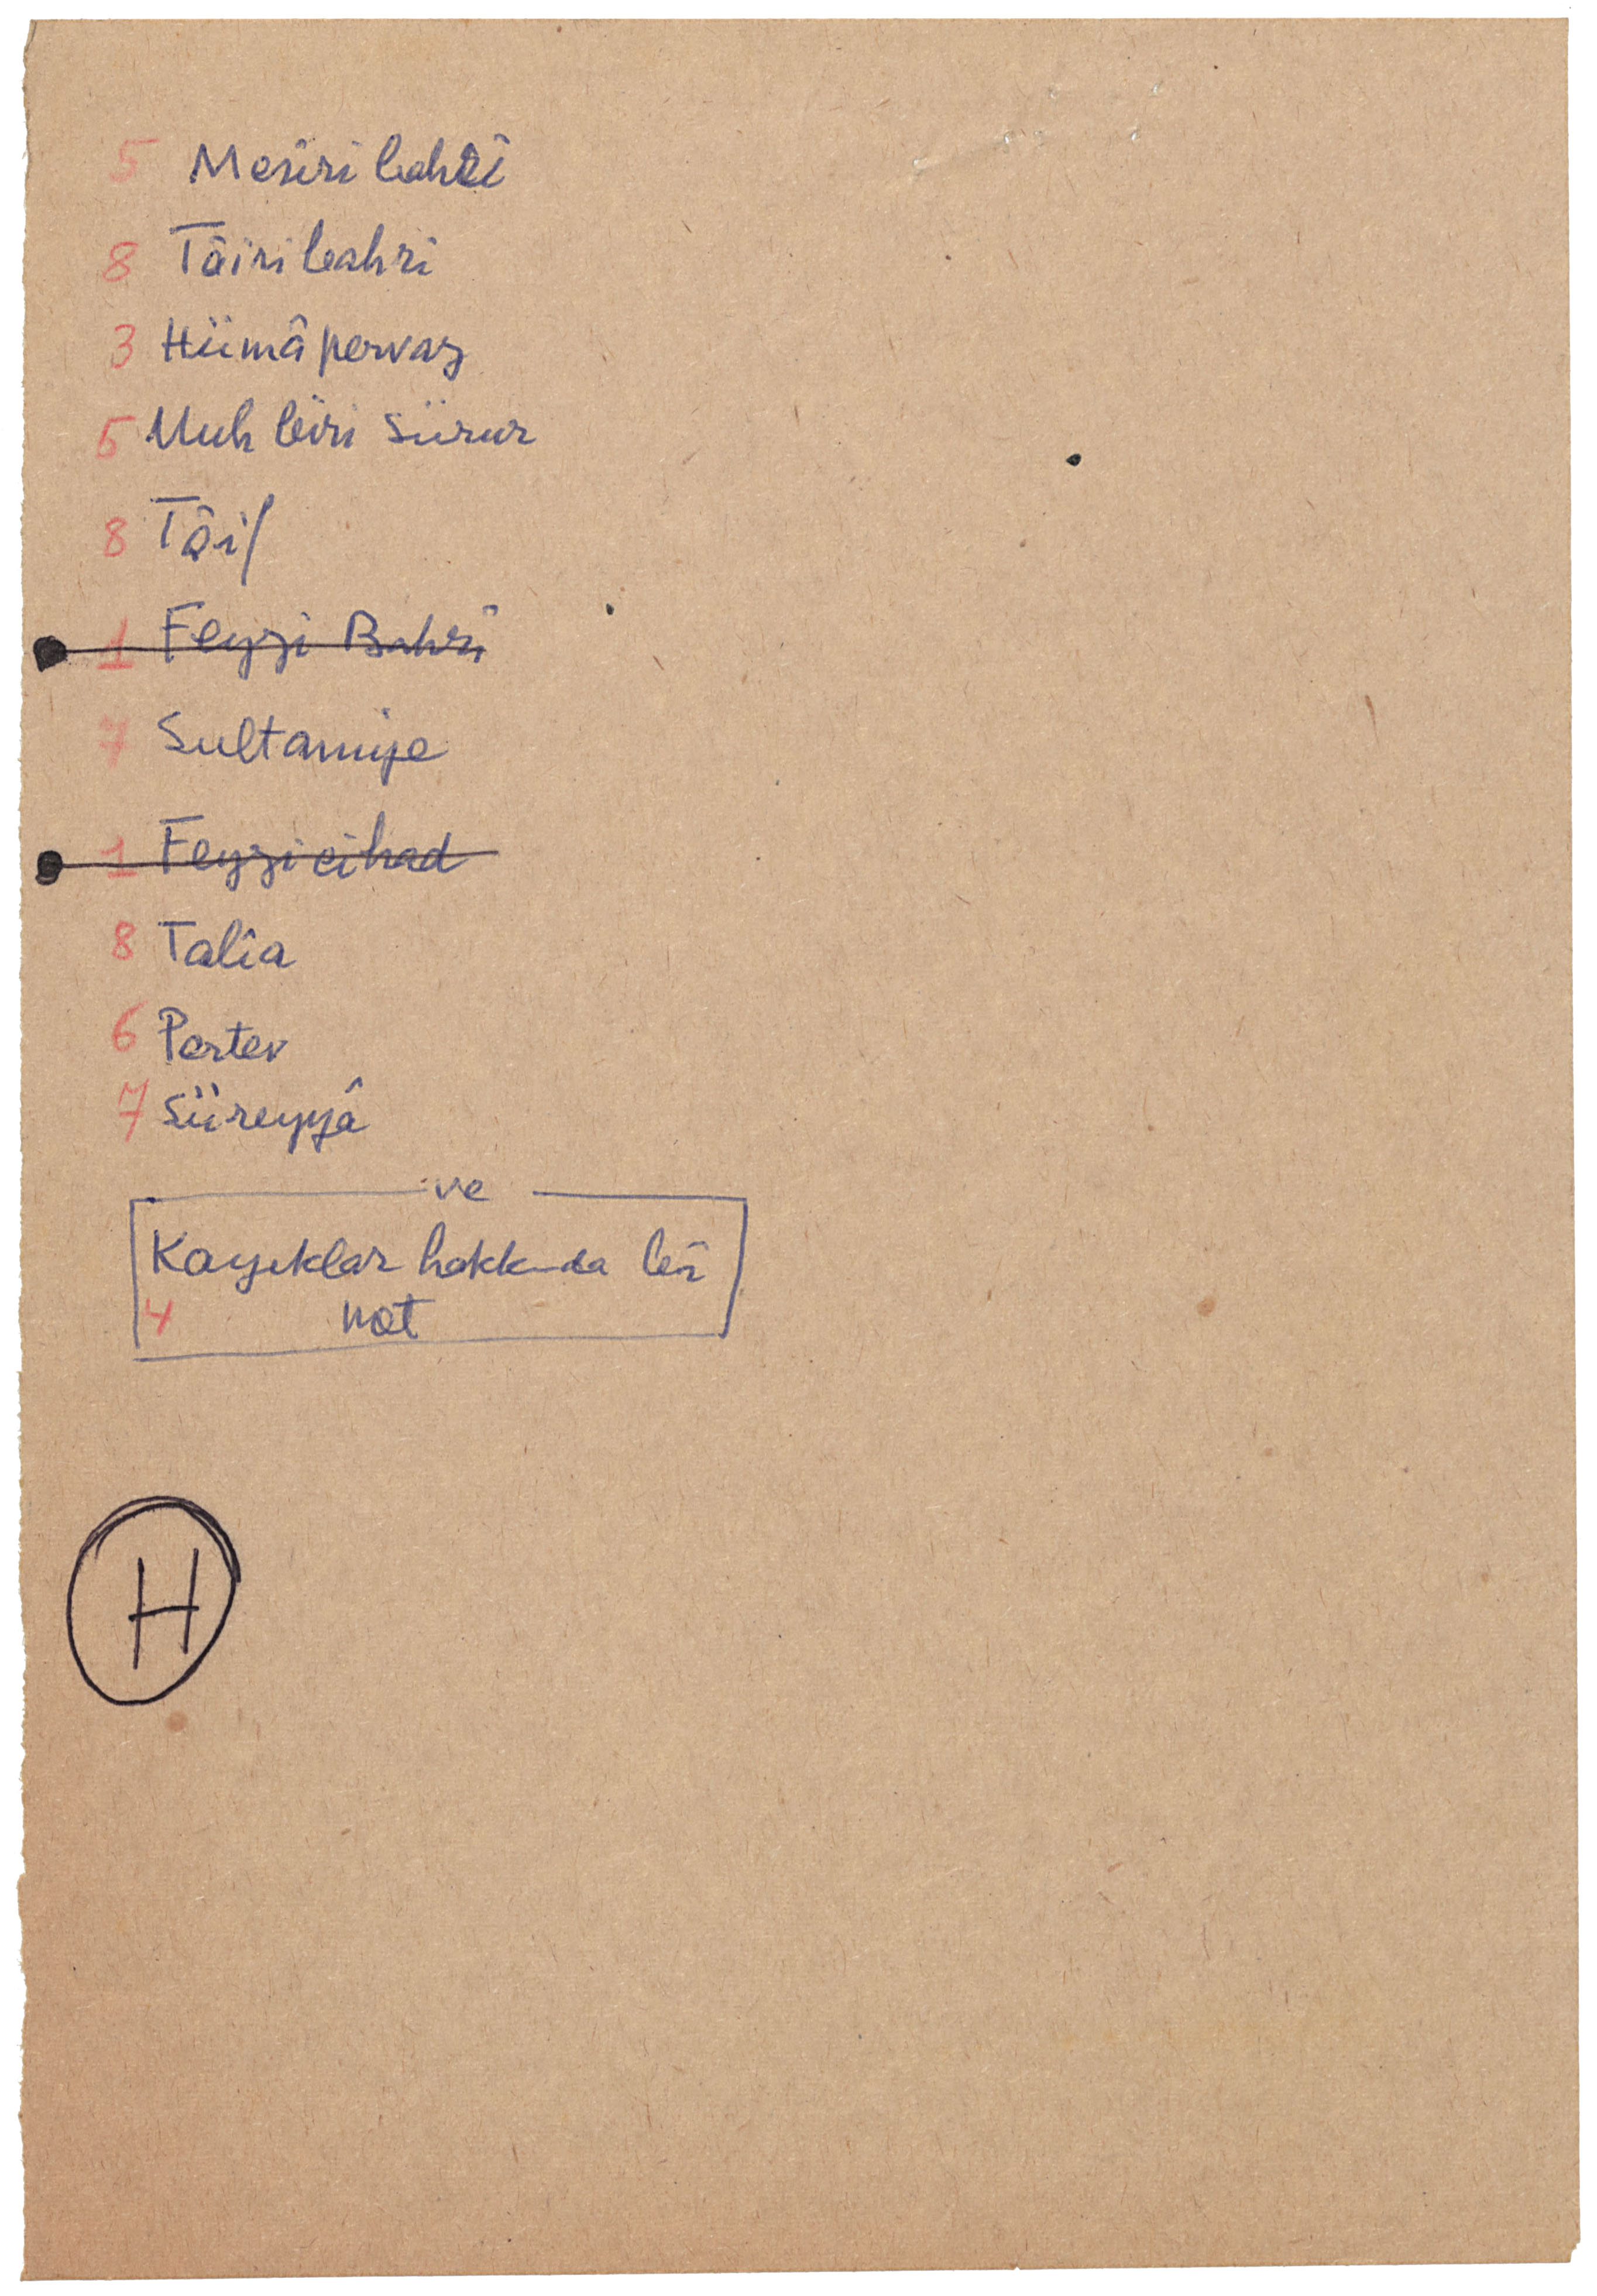 5 Mesiri bahri
8 Tâiri bahri
3 Hümâ pervaz
5 Muhbiri Sürur
8 Tâif
1 Feyzi Bahri
7 Sultaniye
1 Feyzi cihad
8 Talia
6 Pertev
7 Süreyyâ
ve
Kayıklar hakkında bir
4 not
H